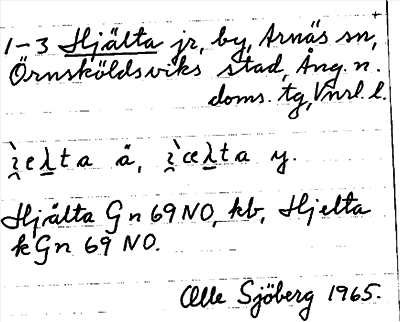 1-3 Hjälta jr, by, Arnäs sn,
Örnsköldsviks stad, Ång. n.
doms. tg, Vnrl. l.
ì̯eλ̲ta ä, ì̯œλ̲ta y.
Hjälta Gn 69 NO, kb, Hjelta
k Gn 69 NO.
Olle Sjöberg 1965.